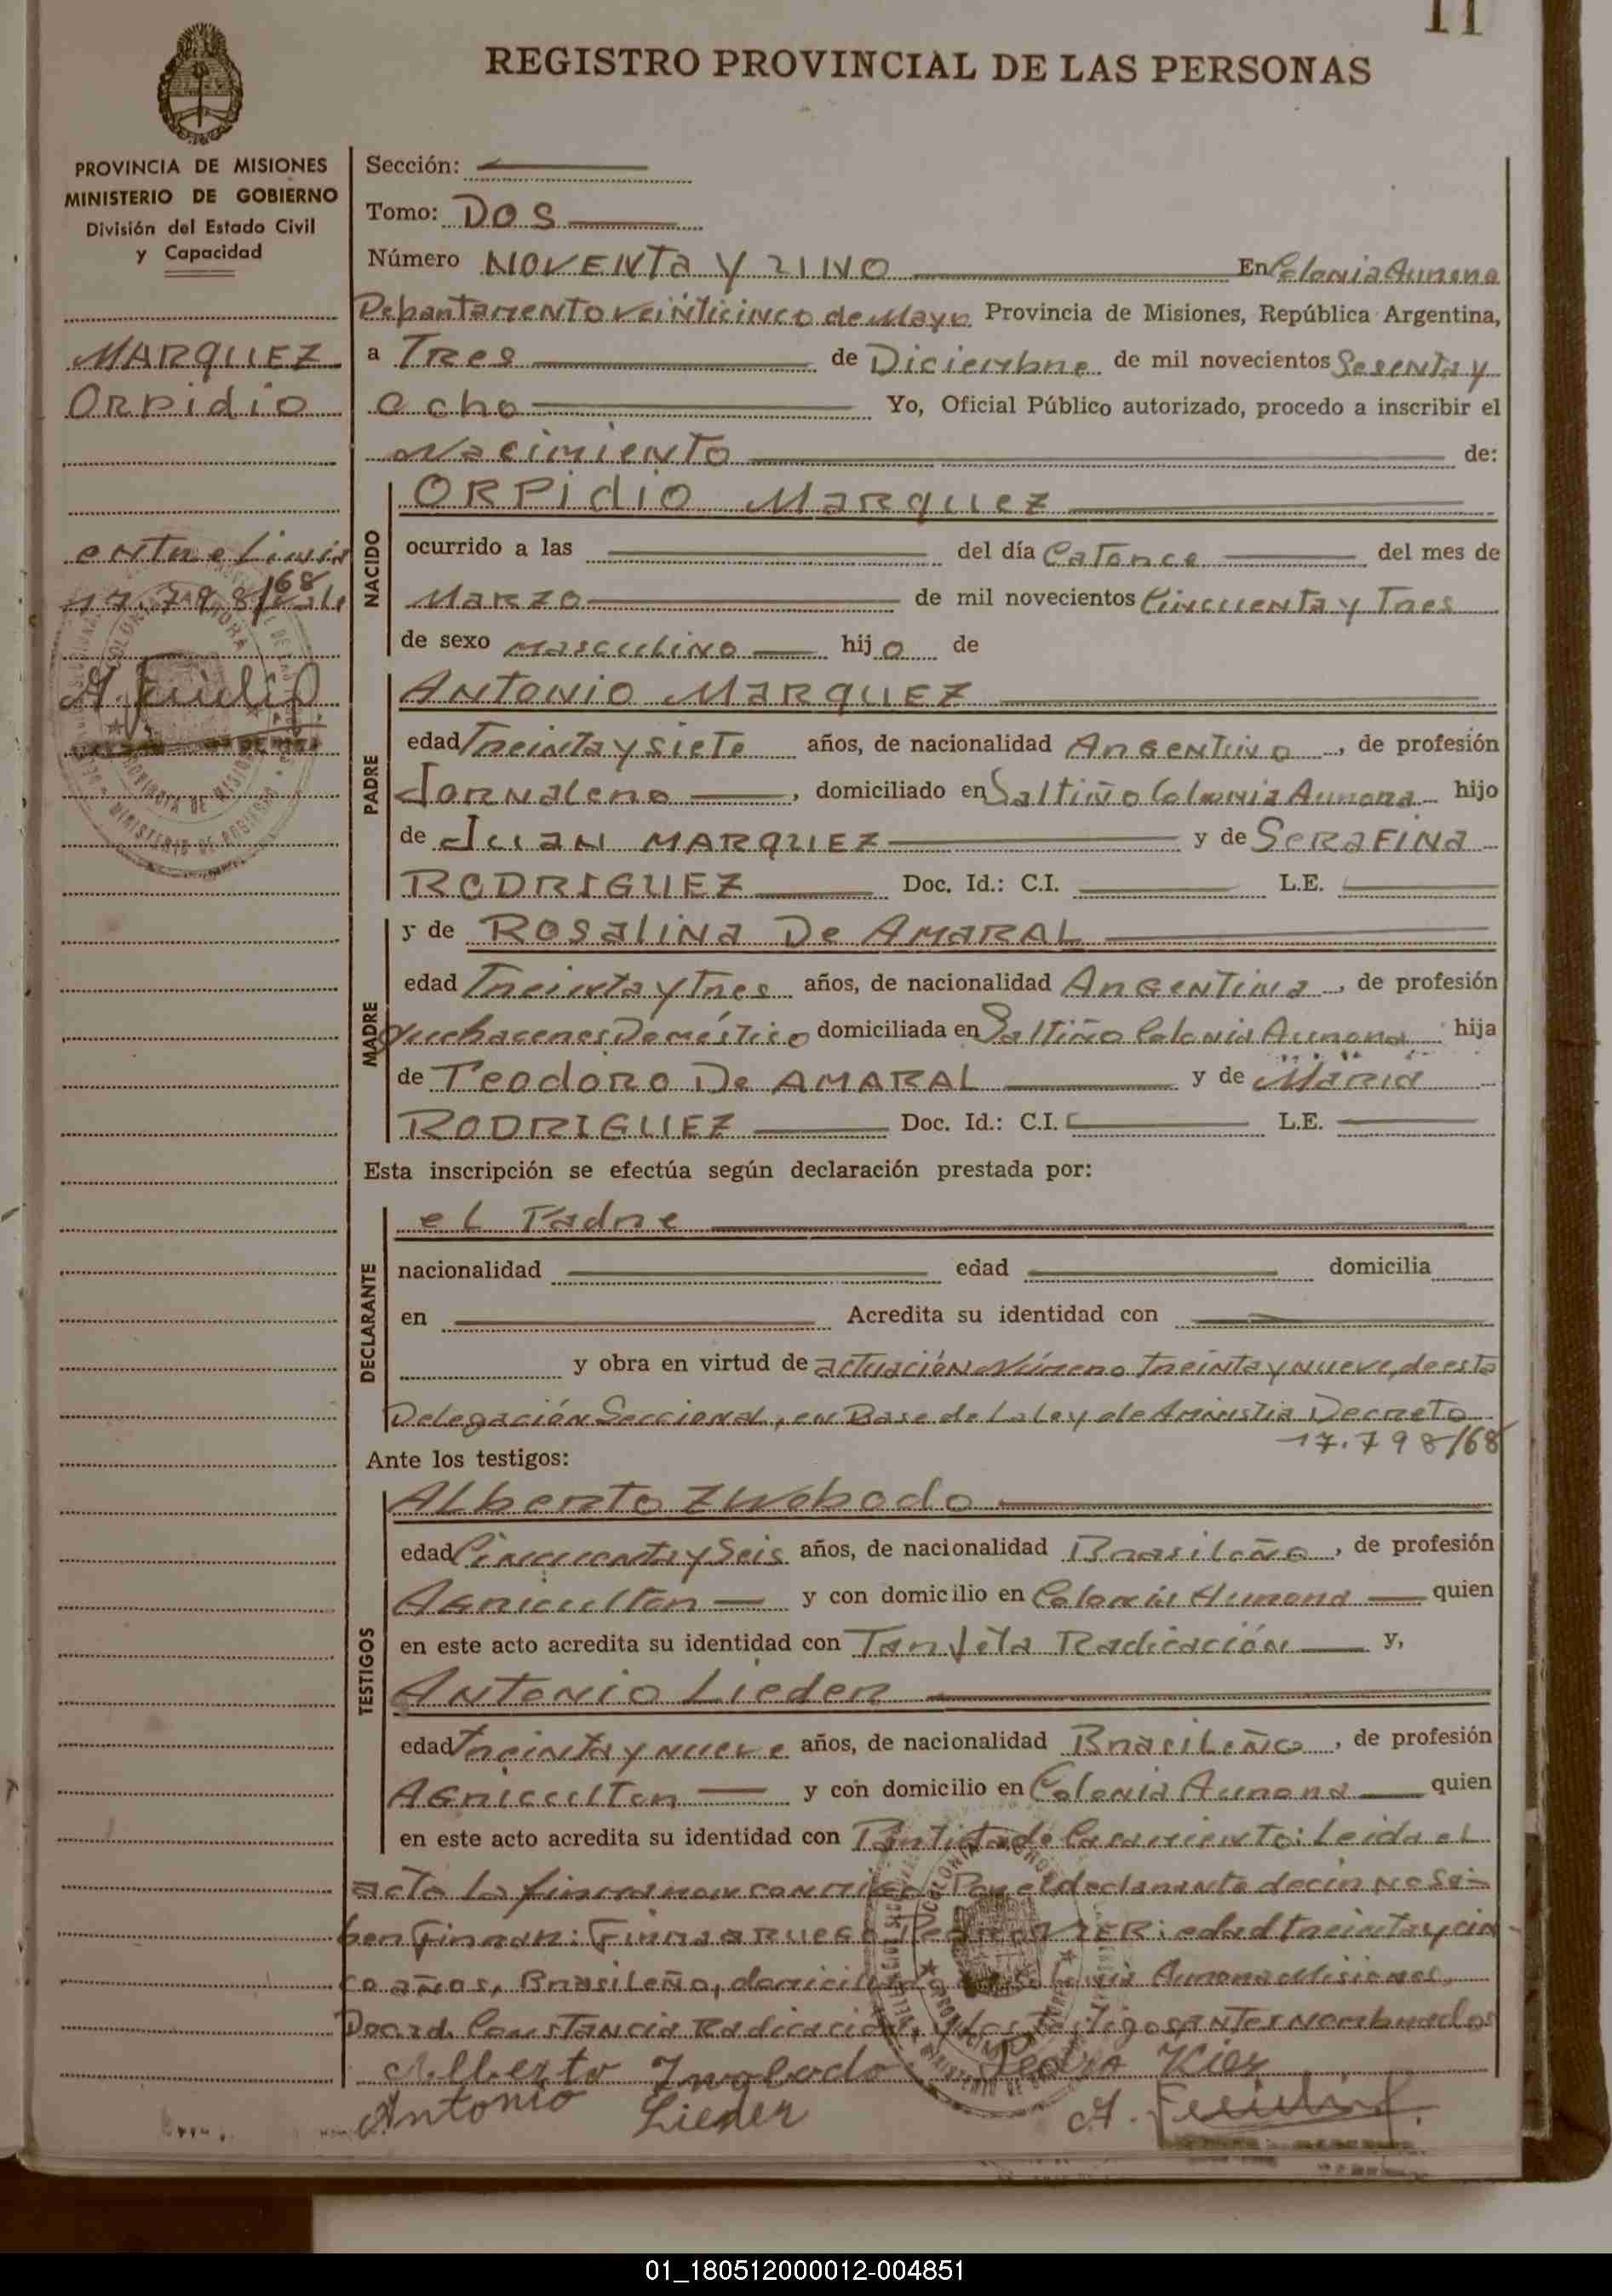 11
REGISTRO PROVINCIAL DE LAS PERSONAS
PROVINCIA DE MISIONES
MINISTERIO DE GOBIERNO
División del Estado Civil
y Capacidad
MARQUEZ
Orpidio
entre Linia
17.798/68
Sección:
Tomo: DOS
Número NOVENTA Y UNO En Colonia Aurora
Departamento veinticinco de Mayo Provincia de Misiones, República Argentina,
a Tres de Diciembre de mil novecientos Sesenta y
ocho Yo, Oficial Público autorizado, procedo a inscribir el
Nacimiento de:
NACIDO
ORPIDIO MARQUEZ
ocurrido a las del día Catorce del mes de
Marzo de mil novecientos Cincuenta y Tres
de sexo masculino hijo de
PADRE
ANTONIO MARQUEZ
edad Treinta y siete años, de nacionalidad Argentino, de profesión
Jornalero, domiciliado en Saltiño Colonia Aurora hijo
de Juan MARQUEZ y de SERAFINA
RODRIGUEZ Doc. Id.: C.I. L.E.
MADRE
y de ROSALINA De AMARAL
edad Treinta y Tres años, de nacionalidad Argentina, de profesión
Quehaceres Doméstico domiciliada en Saltiño Colonia Aurora hija
de Teodoro De AMARAL y de Maria
RODRIGUEZ Doc. Id.: C.I. L.E.
Esta inscripción se efectúa según declaración prestada por:
DECLARANTE
el Padre
nacionalidad edad domicilia
en Acredita su identidad con
y obra en virtud de actuación Número treinta y nueve, de esta
Delegación Seccional, en Base de La Ley de Aministia Decreto
17.798/68
Ante los testigos:
TESTIGOS
Alberto Zwobodo
edad Cincuenta y Seis años, de nacionalidad Brasileño, de profesión
Agricultor y con domicilio en Colonia Aurora quien
en este acto acredita su identidad con Tarjeta Radicación y,
Antonio Lieder
edad treinta y nueve años, de nacionalidad Brasileño, de profesión
Agricultor y con domicilio en Colonia Aurora quien
en este acto acredita su identidad con Partida de Casamiento: Leida el
acta la firman conmigo Por el declarante decir no sa-
ber firmar: Firma a RUEGO: edad treinta y cin-
co años, Brasileño, domiciliado Colonia Aurora Misiones
Doc. Id. Constancia Radicación, y los testigos antes nombrados
Alberto Zwobodo Pedro Kier
Antonio Lieder
01_180512000012-004851